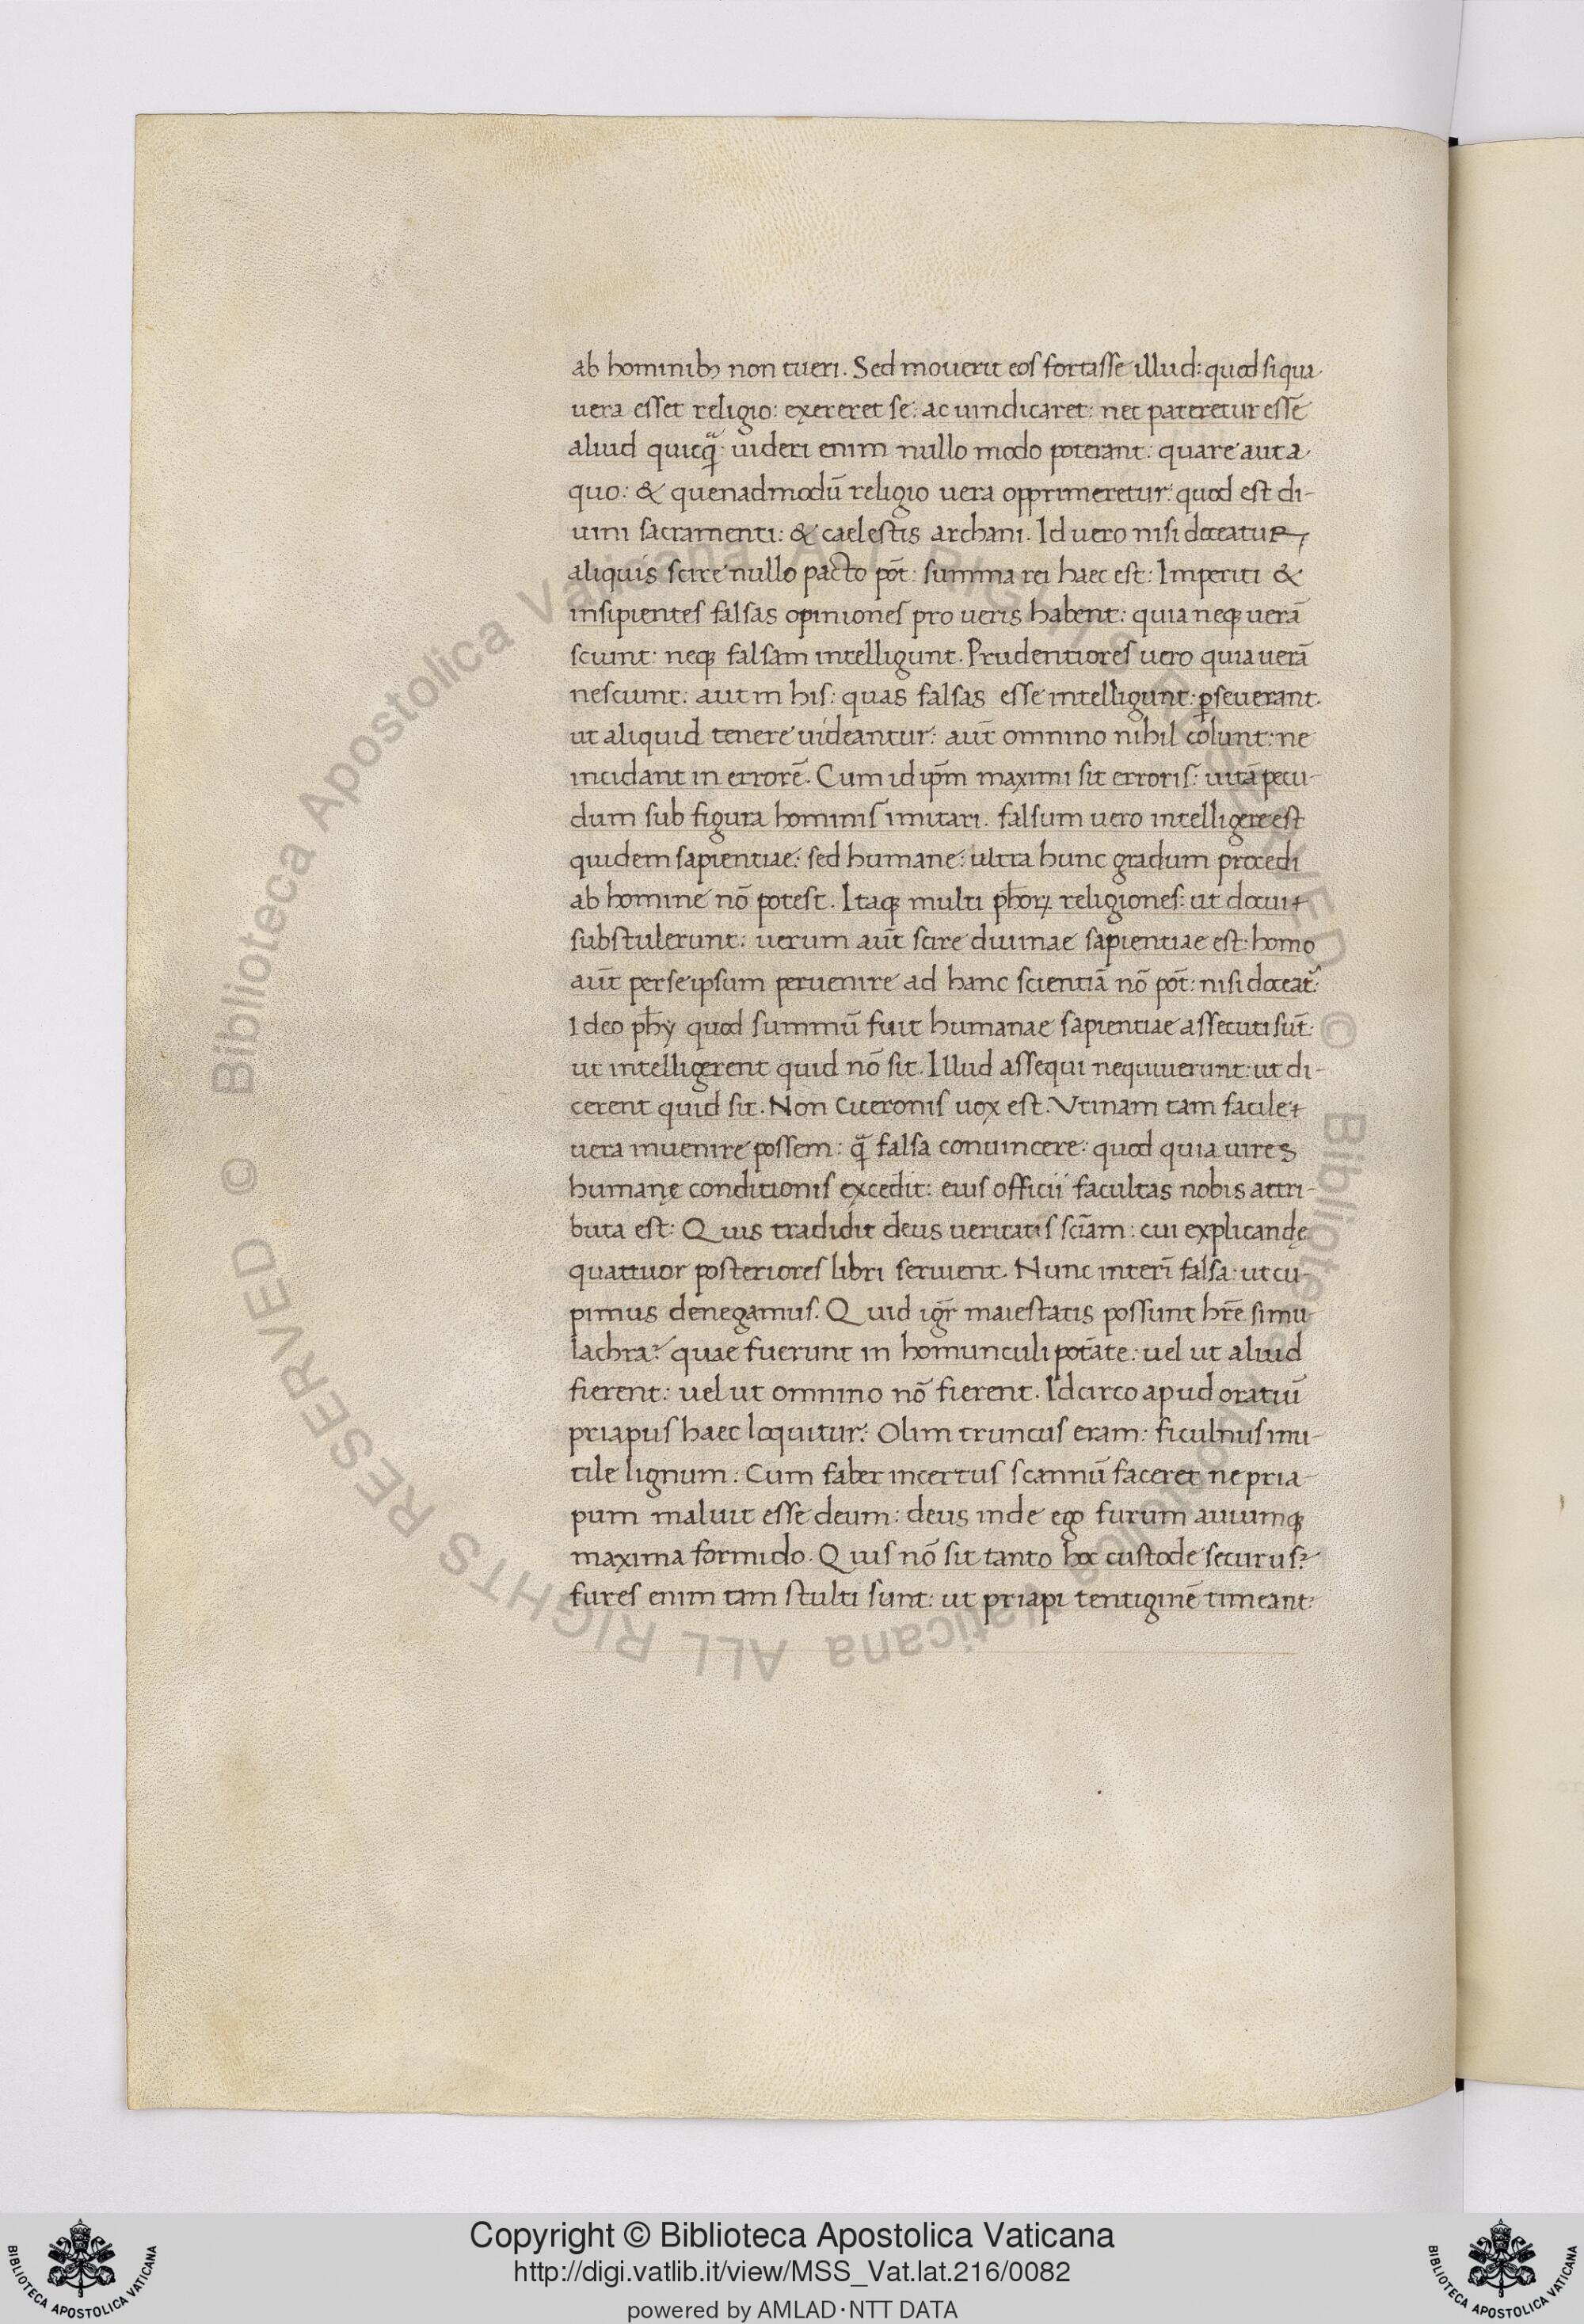 ab hominibꝫ non tueri. Sed moverit eos fortasse illud: quod si qua
uera esset religio: exereret se: ac uindicaret: nec pateretur esse
aliud quicqᷓ: uideri enim nullo modo poterant: quare aut a
quo: & quenadmodū religio uera opprimeretur: quod est di-
uini sacramenti: & caelestis archani. Id uero nisi doceatur
aliquis scire nullo pacto pōt: summa rei haec est: Imperiti &
insipientes falsas opiniones pro ueris habent: quia neqꝫ uerā
sciunt: neqꝫ falsam intelligunt. Prudentiores uero quia uerā
nesciunt: aut in his: quas falsas esse intelligunt: ꝑseuerant.
ut aliquid tenere uideantur: aut̄ omnino nihil colunt: ne
incidant in errorē. Cum id ip̄m maximi sit erroris: uitā pecu-
dum sub figura hominis imitari. falsum uero intelligere est
quidem sapientiae: sed humane: ultra hunc gradum procedi
ab homine nō potest. Itaqꝫ multi ph̄orꝝ religiones: ut docui
substulerunt: uerum aut̄ scire diuinae sapientiae est: homo
aut̄ per se ipsum peruenire ad hanc scientiā nō pōt: nisi doceat᷑:
Ideo ph̄y quod summū fuit humanae sapientiae assecuti sūt:
ut intelligerent quid nō sit. Illud assequi nequiuerunt: ut di-
cerent quid sit. Non Ciceronis uox est. Vtinam tam facile
uera inuenire possem: qᷓ falsa conuincere: quod quia uires
humanę conditionis excedit: eius officii facultas nobis attri-
buta est: Quis tradidit deus ueritatis sciām: cui explicandę
quattuor posteriores libri seruient. Nunc interī falsa: ut cu-
pimus denegamus. Quid igr̄ maiestatis possunt hr̄e simu-
lachra? quae fuerunt in homunculi potāte: uel ut aliud
fierent: uel ut omnino nō fierent. Idcirco apud oratiū
priapus haec loquitur: Olim truncus eram: ficulnus inu-
tile lignum: Cum faber incertus scannū faceret ne pria-
pum maluit esse deum: deus inde ego furum auiumqꝫ
maxima formido. Quis nō sit tanto hoc custode securus?
fures enim tam stulti sunt: ut priapi tentiginē timeant:
© Biblioteca Apostolica Vaticana ALL RIGHTS RESERVED © Biblioteca Apostolica Vaticana ALL RIGHTS RESERVED
Copyright © Biblioteca Apostolica Vaticana
http://digi.vatlib.it/view/MSS_Vat.lat.216/0082
powered by AMLAD·NTT DATA
BIBLIOTECA APOSTOLICA VATICANA
BIBLIOTECA APOSTOLICA VATICANA